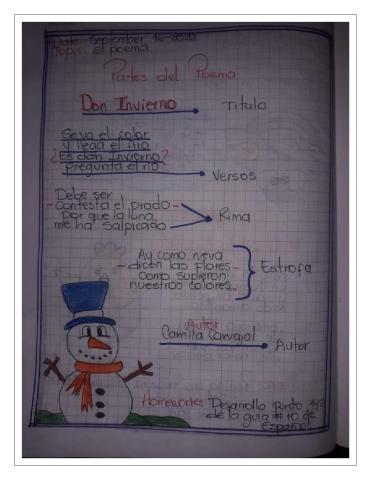 Date: September 16-2020
Topic: el poema
Partes del Poema
Don Invierno Titulo
Se va el color
y llega el frio
¿Es don Invierno?
pregunta el rio
Versos
Debe ser
- contesta el prado -
por que la luna
me ha salpicado
Rima
Ay como nieva
- dicen las flores -
como supieron
nuestros colores.
Estrofa
Autor
Camila Carvajal Autor
Homework: Desarrollo Punto
de la guia # 10 de
Español